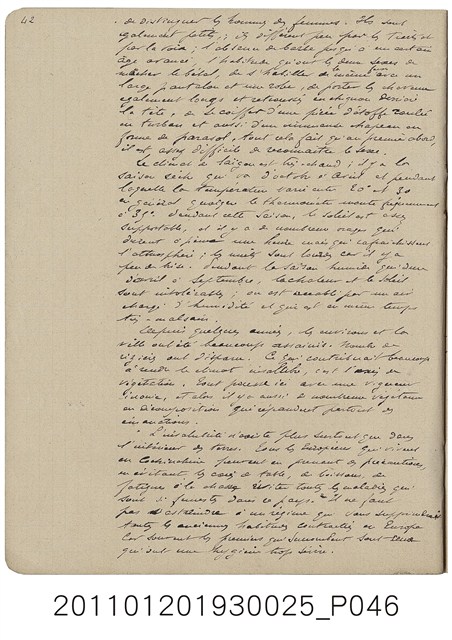 42
de distinguer les hommes des femmes. Ils sont
également petits; ils diffèrent peu par la
par la voix; l'absence de barbe jusqu'à un certain
âge avancé, l'habitude qu'ont les deux sexes de
mâcher le bétel, de s'habiller de même avec un
large pantalon et une robe, de porter les cheveux
également longs et retroussés en chignon derrière
la tête, de se coiffer d'une pièce d'étoffe roulée
en turban et aussi d'un immense chapeau en
forme de parasol, tout cela fait qu'au premier abord,
il est assez difficile de reconnaître le sexe.
Le climat de Saïgon est très-chaud; il y a la
saison sèche qui va d'octobre à avril et pendant
laquelle la température varie entre 20° et 30
en général quoique le thermomètre monte fréquemment
à 35°. Pendant cette saison, le soleil est assez
supportable, et il y a de nombreux orages qui
durent à peine une heure mais qui rafraîchissent
l'atmosphère; les nuits sont lourdes car il y a
peu de brise. Pendant la saison humide qui dure
d'avril à septembre, la chaleur et le soleil
sont intolérables; on est accablé par un air
chargé d'humidité et qui est en même temps
très-malsain.
Depuis quelques années, les environs et la
ville ont été beaucoup assainis. Nombre de
rizières ont disparu. Ce qui contribuait beaucoup
à rendre le climat insalubre, c'est l'
végétation. Tout pousse ici avec une vigueur
inouïe, et alors il y a aussi de nombreux végétaux
en décomposition qui répandent partout des
émanations.
L'insalubrité n'existe plus surtout que dans
l'intérieur des terres. Tous les Européens qui vivent
en Cochinchine peuvent en prenant des précautions,
en évitant les excès de table, de boissons, de
fatigue à la chasse éviter toutes les maladies qui
sont si funestes dans ce pays. Il ne faut
pas s'astreindre à un régime qui vous supprimerait
toutes les anciennes habitudes contractées en Europe
Car souvent les premiers qui succombent sont ceux
qui ont une hygiène trop sévère.
201101201930025_P046